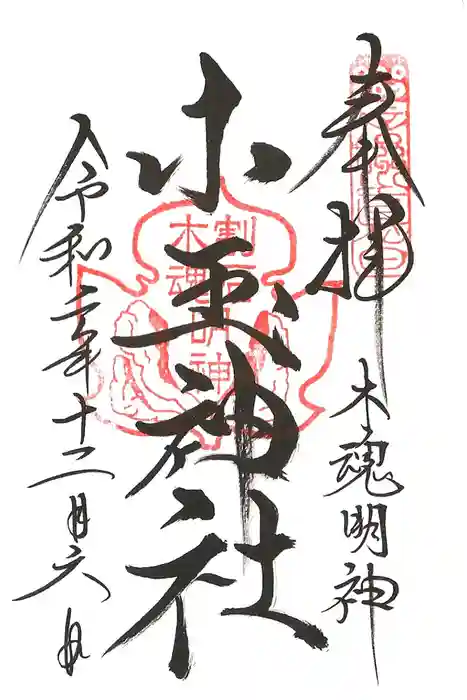 奉拝
木魂明神
木玉神社
割石明神
木魂
令和二年十二月六日